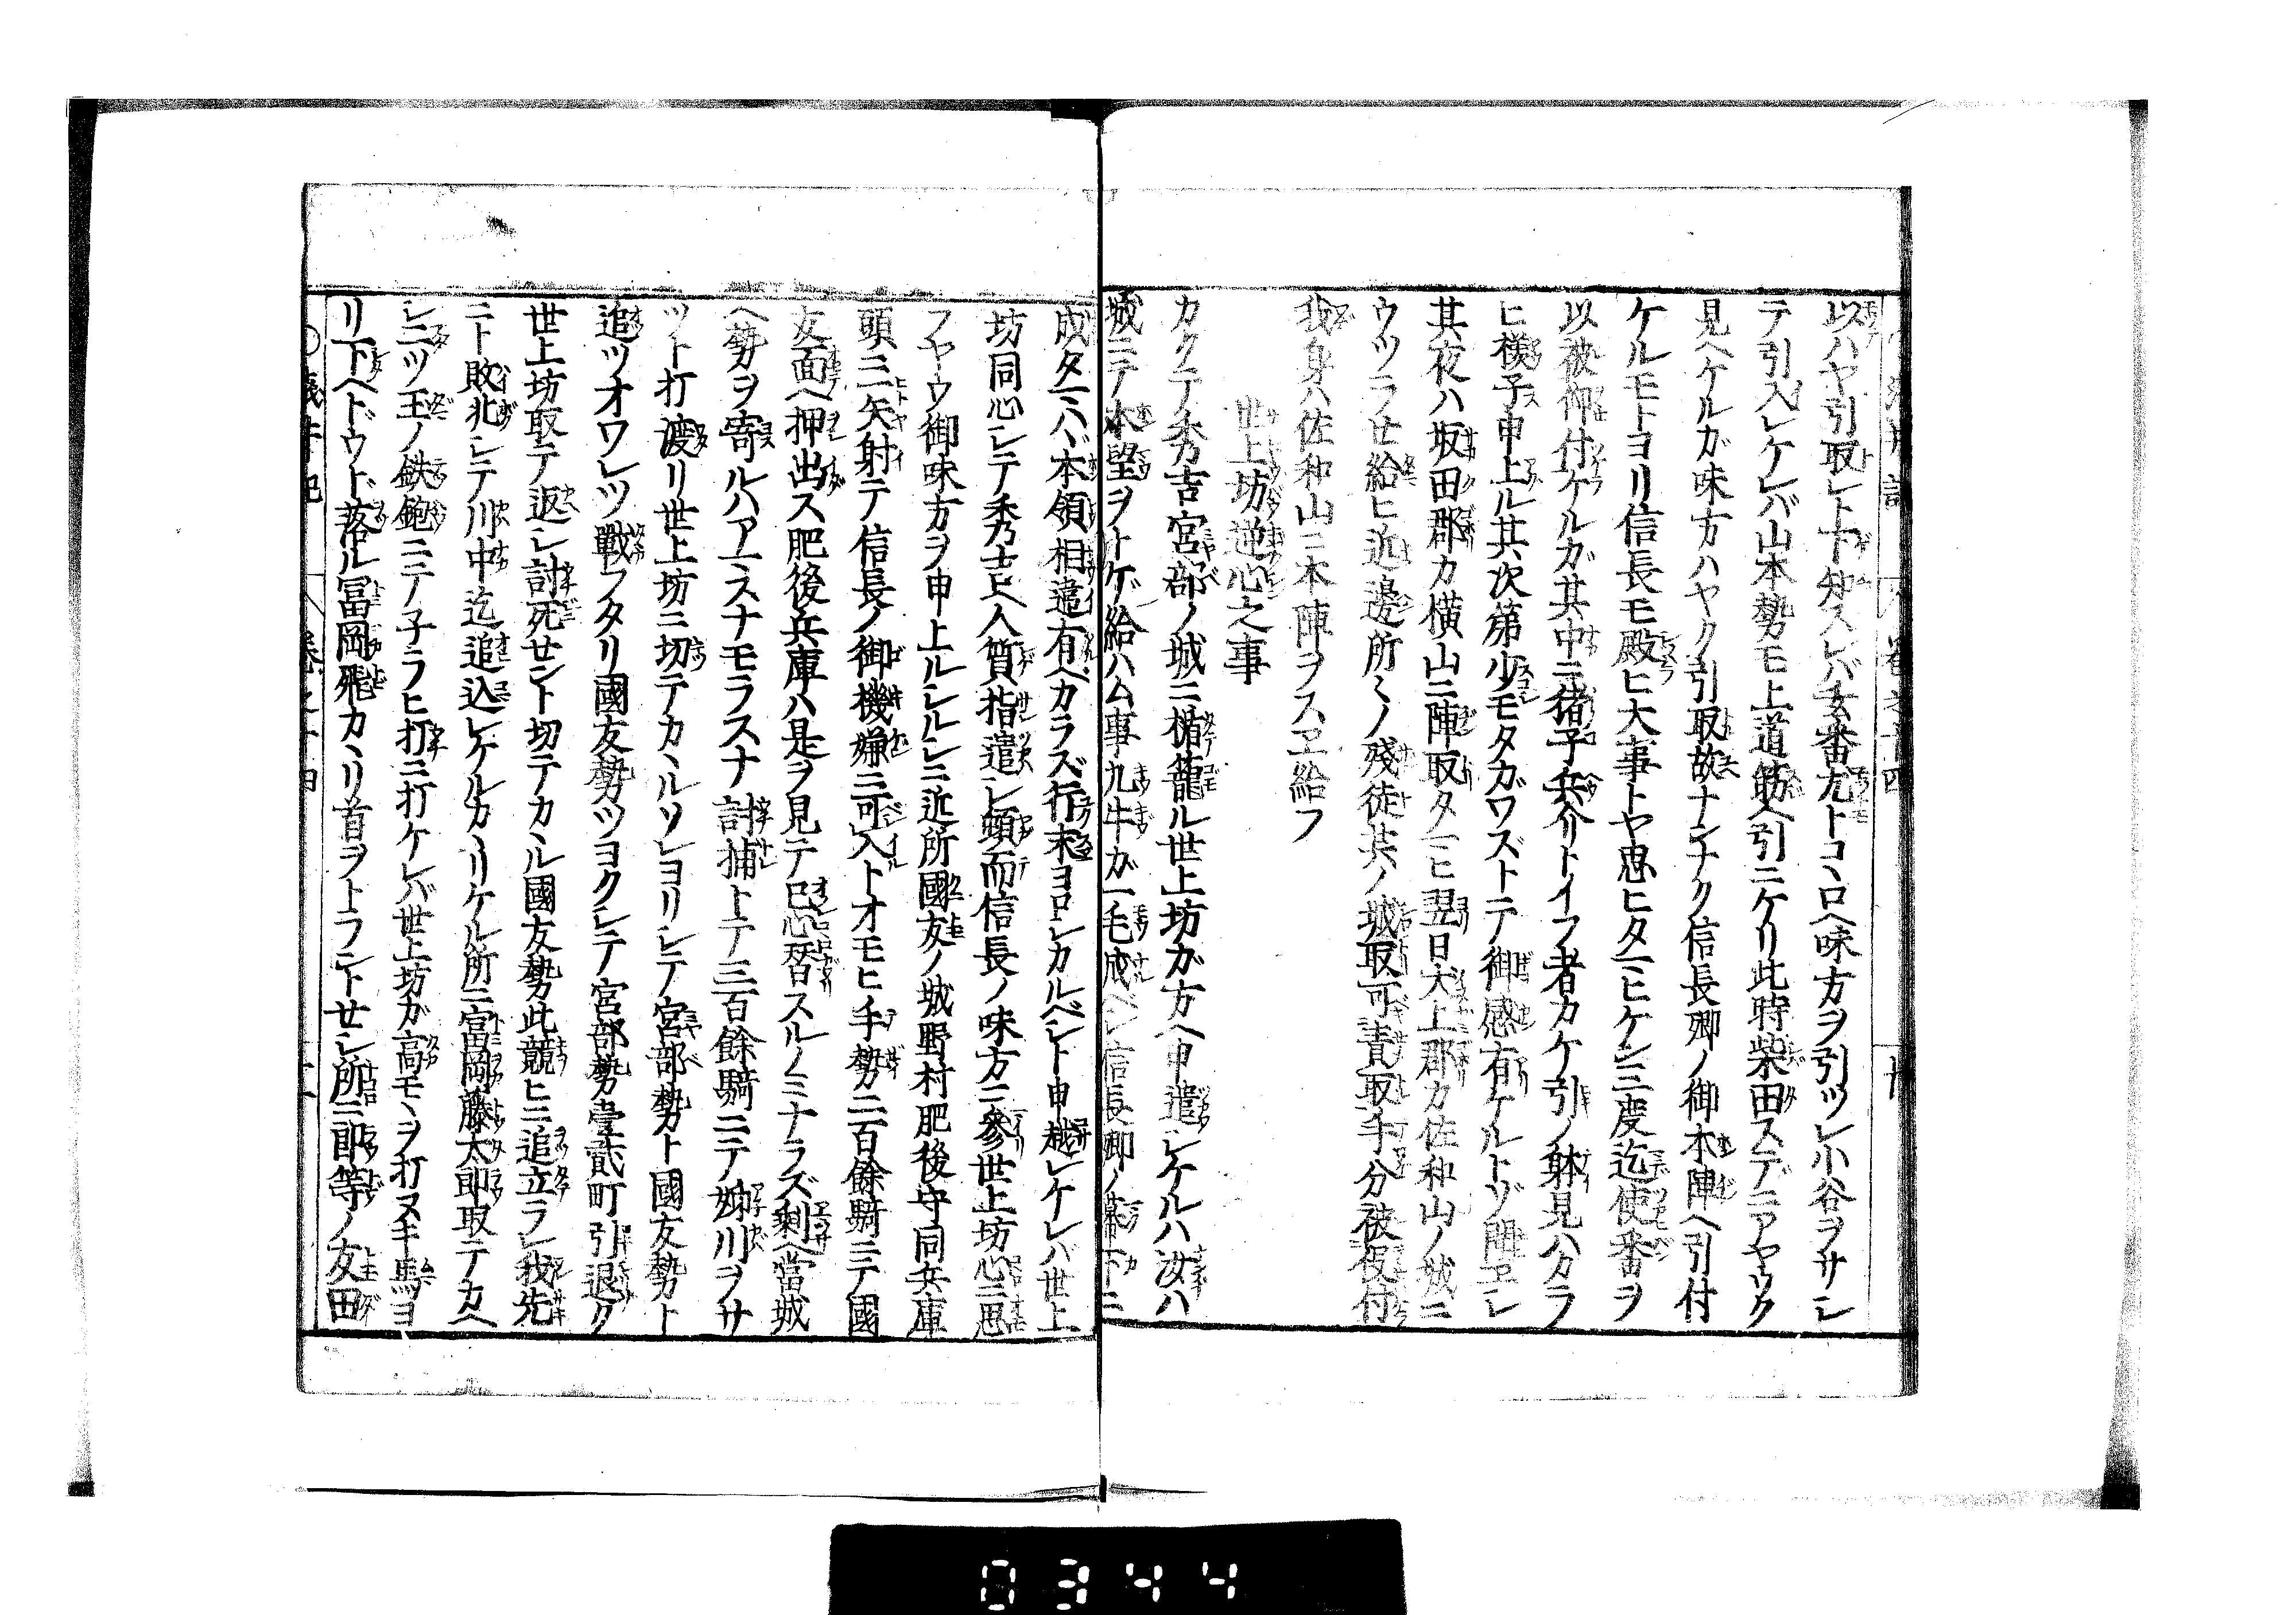 以ハヤ引取レト下知スレバ玄番尤トコヽロヘ味方ヲ引ツレ小谷ヲサシ
テ引入レケレバ山本勢モ上道筋ヘ引ニケリ此時柴田スデニアヤウク
見ヘケルガ味方ハヤク引取故ナンナク信長卿ノ御本陣ヘ引付
ケルモトヨリ信長モ殿ヒ大事トヤ思ヒタマヒケン三度迄使番ヲ
以被仰付ケルガ其中ニ猪子兵介トイフ者カケ引ノ躰見ハカラ
ヒ様子申上ル其次第少モタガワズトテ御感有ケルトゾ聞エシ
其夜ハ坂田郡カ横山ニ陣取タマヒ翌日犬上郡カ佐和山ノ城ニ
ウツラせ給ヒ近邊所ミノ残徒共ノ城取可責取手分被役付
我身ハ佐和山ニ本陣ヲスヱ給フ
世上坊逆心之事
カクテ秀吉宮部ノ城ニ楯籠ル世上坊ガ方ヘ申遣シケルハ汝ハ
城ニテ本望ヲトゲ給ハム事九牛ガ一毛成ベシ信長卿ノ幕下ニ
成タマハヾ本領相違有ベカラズ行末ヨロシカルベシト申越シケレバ世上
坊同心シテ秀吉ヘ人質指遣シ頓而信長ノ味方ニ參世上坊心ニ思
フヤウ御味方ヲ申上ルシルシニ近所國友ノ城野村肥後守同兵庫
頭ニ一矢射テ信長ノ御機嫌ニ可入トオモヒ手勢二百餘騎ニテ國
友面ヘ押出ス肥後兵庫ハ是ヲ見テ己心替スルノミナラズ剰ヘ當城
ヘ勢ヲ寄ルハアマスナモラスナ討捕トテ三百餘騎ニテ姉川ヲサ
ツト打渡リ世上坊ニ切テカヽルソレヨリシテ宮部勢ト國友勢ト
追ツオワレツ戰フタリ國友勢ツヨクシテ宮部勢壹貳町引退ク
世上坊取テ返シ討死せント切テカヽル國友勢此競ヒニ追立ラレ我先
ニト敗北シテ川中迄追込レケルカヽリケル所ニ富岡藤太郎取テカヘ
シ二ツ玉ノ鉄鉋ニテ子ラヒ打ニ打ケレバ世上坊ガ高モヽヲ打ヌキ馬ヨ
リ下ヘドウド落ル冨岡飛カヽリ首ヲトラントせシ所ニ郎等ノ友田